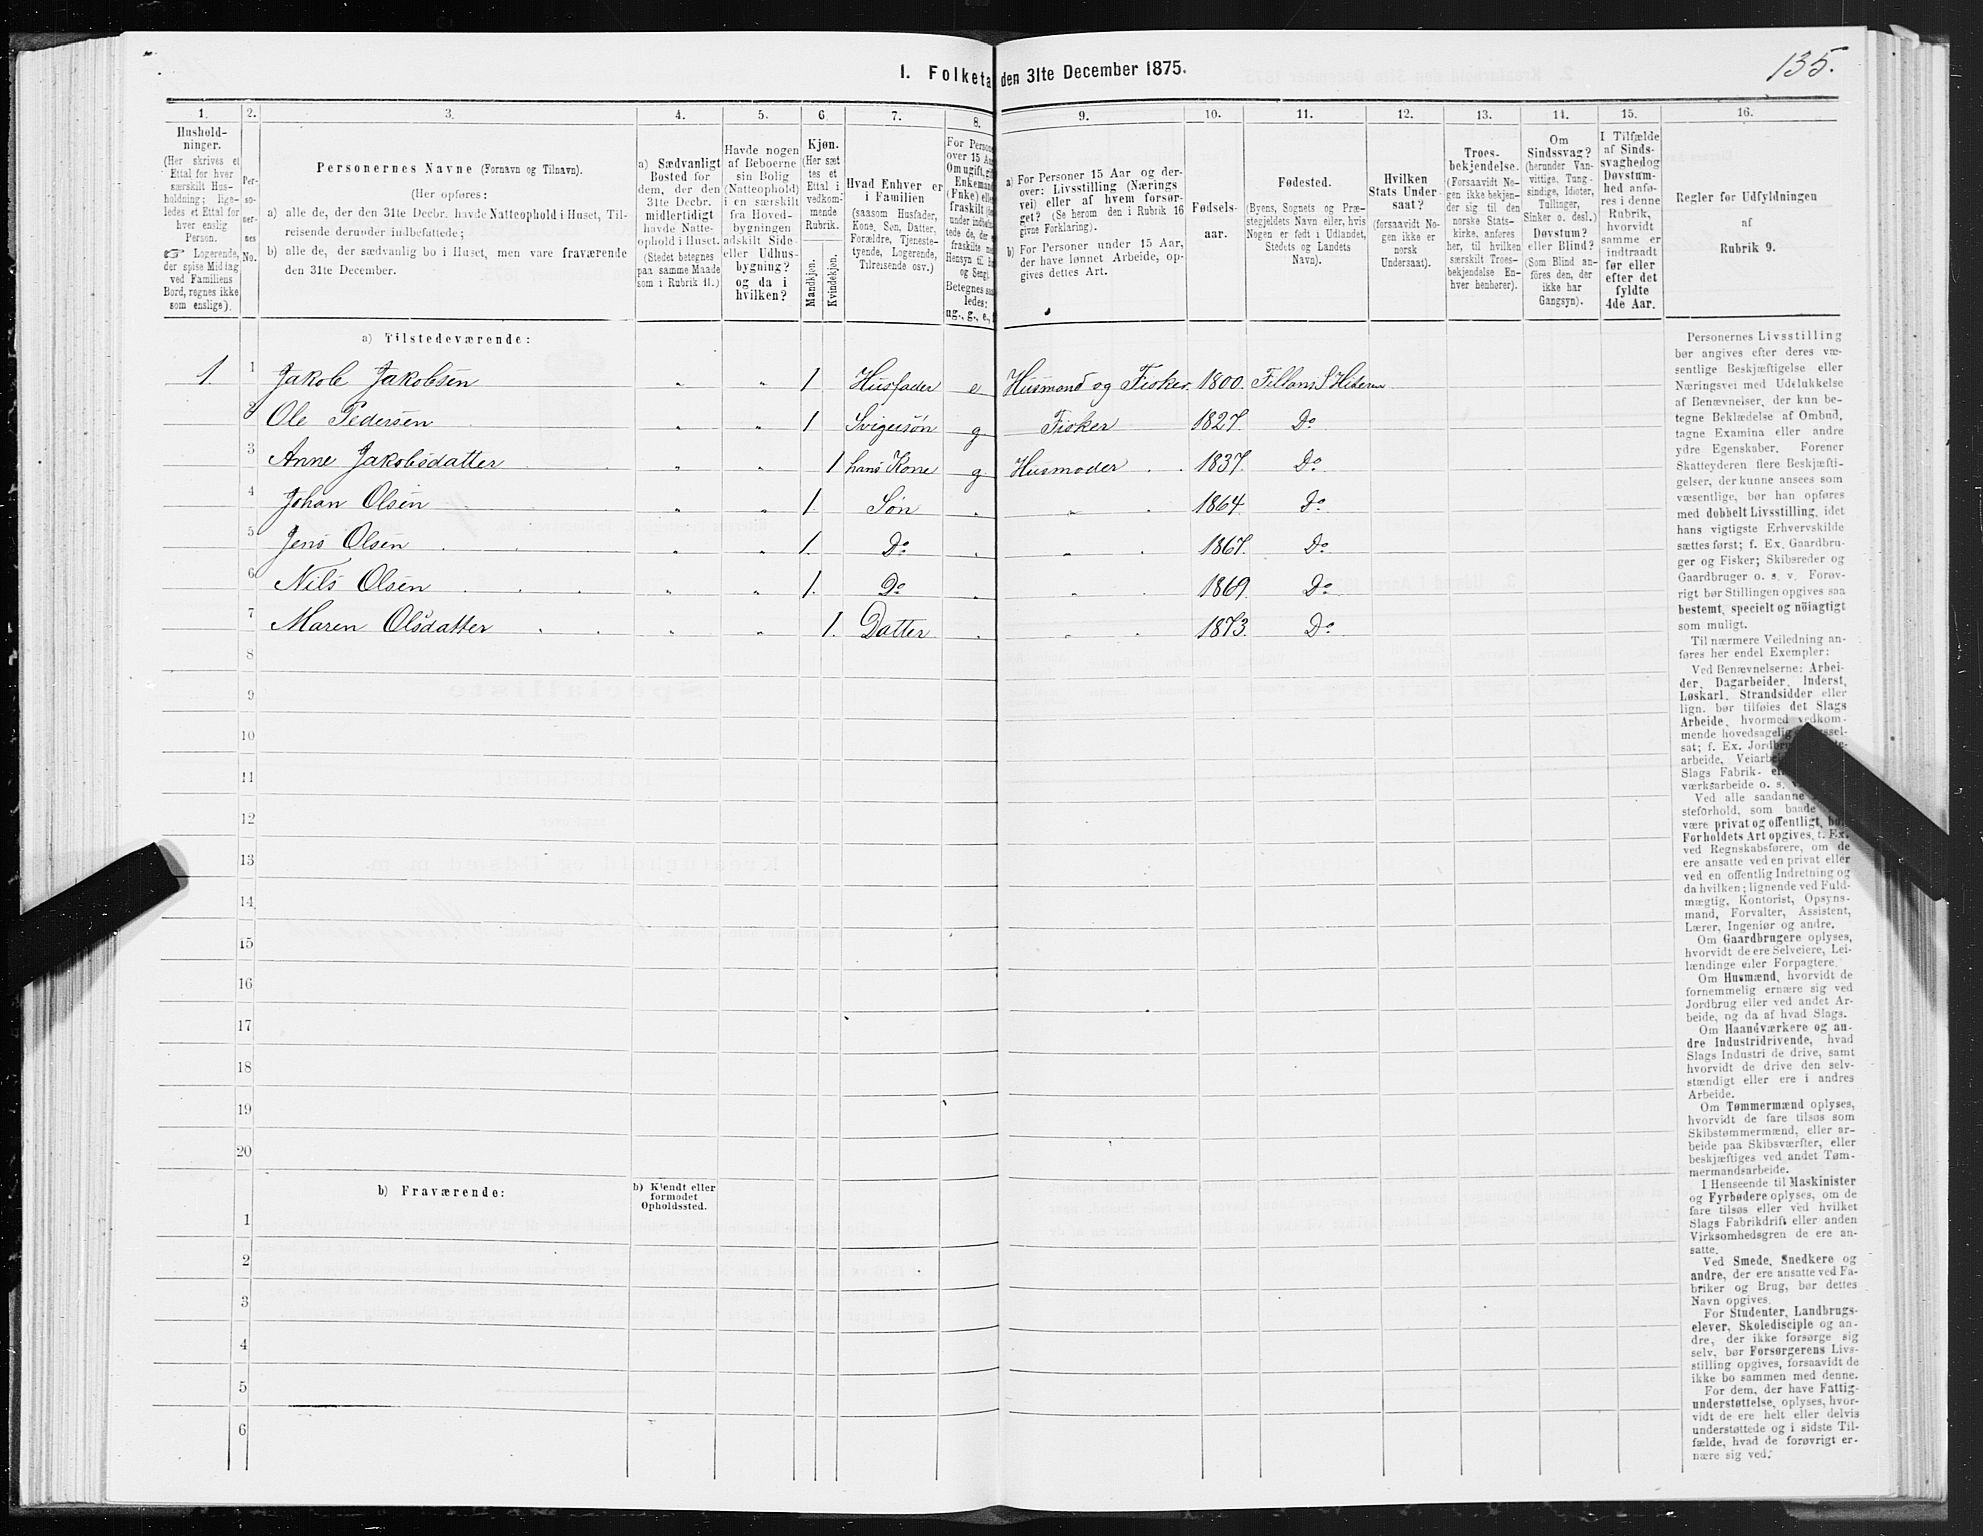 135.
I. Folketa den 31te December 1875.
1. 2. 3. 4. 5. 6. 7. 8. 9. 10. 11. 12. 13. 14. 15. 16.
Hushold-
ninger.
(Her skrives et
Ettal for hver
særskilt Hus-
holdning; lige-
ledes et Ettal for
hver enslig
Person.
☞ Logerende,
der spise Middag
ved Familiens
Bord, regnes ikke
som enslige).
Per-
so-
ner-
nes
No.
Personernes Navne (Fornavn og Tilnavn).
(Her opføres:
a) alle de, der den 31te Decbr. havde Natteophold i Huset, Til-
reisende derunder indbefattede;
b) alle de, der sædvanlig bo i Huset, men vare fraværende
den 31te December.
a) Sædvanligt
Bosted for
dem, der den
31te Decbr.
midlertidigt
havde Natte-
ophold i Huset.
(Stedet betegnes
paa samme Maade
som i Rubrik 11.)
Havde nogen
af Beboerne
sin Bolig
(Natteophold)
i en særskilt
fra Hoved-
bygningen
adskilt Side-
eller Udhus-
bygning?
og da i
hvilken?
Kjøn.
(Her sæt
tes et
Ettal i
vedkom-
mende
Rubrik.
Mandkjøn.
Kvindekjøn.
Hvad Enhver er
i Familien
(saasom Husfader,
Kone, Søn, Datter,
Forældre, Tjeneste-
tyende, Logerende,
Tilreisende osv.)
For Person
over 15 Aa
Om ugift, gi
Enkeman
(Fnke) elle
fraskilt
under indbef
tede de, der
fraskilte m
Hensyn til B
og Seng).
Betegnes sa
ledes:
ug., g., e.,
a) For Personer 15 Aar og der-
over: Livsstilling (Nærings
vei) eller af hvem forsør-
get? (Se herom den i Rubrik 16
givne Forklaring).
b) For Personer under 15 Aar,
der have lønnet Arbeide, op-
gives dettes Art.
Fødsels-
aar.
Fødested.
(Byens, Sognets og Præ-
stegjeldets Navn eller, hvis
Nogen er født i Udlandet,
Stedets og Landets
Navn).
Hvilken
Stats Under-
saat?
(forsaavidt No-
gen ikke er
norsk
Undersaat).
Troes-
bekjendelse.
(Forsaavidt No-
gen ikke bekjen-
der sig til den
norske Stats-
kirke, anføres
her, til hvilken
særskilt Troes-
bekjendelse En-
hver henhører).
Om
Sindssvag?
(herunder Van-
vittige, Tung-
sindige, Idioter,
Tullinger,
Sinker o. desl.)
Døvstum?
eller Blind?
(Som Blind an-
føres den, der
ikke har
Gangsyn).
I Tilfælde
af Sinds-
svaghed og
Døvstum-
hed anfø-
res i denne
Rubrik,
hvorvidt
samme er
indtraadt
før eller
efter det
fyldte
4de Aar.
Regler for Udfyldningen
af
Rubrik 9.
a) Tilstedeværende:
1. 1 Jakob Jakobsen " " 1 Husfader e Husmand og Fisker. 1800. Fillans S Hiteren
2 Ole Pedersen " " 1 Svigersøn g Fisker 1827. Do
3 Anne Jakobsdatter " " 1 hans Kone g Husmoder 1837. Do
4 Johan Olsen " " 1. Søn " " 1864. Do
5 Jens Olsen " " 1. Do " " 1867. Do
6 Nils Olsen " " 1. Do " " 1869. Do
7 Maren Olsdatter " " 1. Datter " " 1873. Do
8
9
10
11
12
13
14
15
16
17
18
19
20
b) Fraværende:
b) Kjendt eller
formodet
Opholdssted.
1
2
3
4
5
6
Personernes Livsstilling
bør angives efter deres væ-
sentlige Beskjæftigelse eller
Næringsvei med Udelukkelse
af Benævneiser, der kun be-
tegne Beklædelse af Ombud,
tagne Examina eller andre
ydre Egenskaber. Forener
Skatteyderen flere Beskjæfti-
gelser, der kunne ansees som
væsentlige, bør han opføres
med dobbelt Livsstilling, idet
hans vigtigste Erhvervskilde
sættes først; f. Ex. Gaardbru-
ger og Fisker; Skibsreder og
Gaardbruger o. s. v. Forøv-
rigt bør Stillingen opgives saa
bestemt, specielt og nöiagtigt
som muligt.
Til nærmere Veiledning an-
føres her endel Exempler:
Ved Benævnelserne: Arbei-
der, Dagarbeider, Inderst,
Løskarl, Strandsidder eller
lign. bør tilføies det Slags
Arbeide, hvormed vedkom-
mende hovedsagelig
sat; f. Ex.
arbeide,
Slags Fabrik-
værksarbeide o. s.
Ved alle saadanne
steforhold, som baade
være privat og offentligt, bør
Forholdets Art opgives, f. Ex.
ved Regnskabsførere, om de
ere ansatte ved en privat eller
ved en offentlig Indretning og
da hvilken; lignende ved Fuld-
mægtig, Kontorist, Opsyns-
mand, Forvalter, Assistent,
Lærer, Ingeniør og andre.
Om Gaardbrugere oplyses,
hvorvidt de ere Selveiere, Lei-
lændinge eller Forpagtere.
Om Husmænd, hvorvidt de
fornemmelig ernære sig ved
Jordbrug eller ved andet Ar-
beide, og da af hvad Slags.
Om Haandværkere og an-
dre Industridrivende, hvad
Slags Industri de drive, samt
hvorvidt de drive den selv-
stændigt eller ere i andres
Arbeide.
Om Tømmermænd oplyses,
hvorvidt de fare tilsøs som
Skibstømmermænd, eller ar-
beide paa Skibsværfter, eller
beskjæftiges ved andet Tøm-
mermandsarbeide.
I Henseende til Maskinister
og Fyrbødere oplyses, om de
fare tilsøs eller ved hvilket
Slags Fabrikdrift eller anden
Virksomhedsgren de ere an-
satte.
Ved Smede, Snedkere og
andre, der ere ansatte ved Fa-
briker og Brug, bør dettes
Navn opgives.
For Studenter, Landbrugs-
elever, Skoledisciple og an-
dre, der ikke forsørge sig
selv, bør Forsørgerens Livs-
stilling opgives, forsaavidt de
ikke bo sammen med denne.
For dem, der have Fattig-
understøttelse, oplyses, hvor-
vidt de ere helt eller delvis
understøttede og i sidste Til-
fælde, hvad de forøvrigt er-
nære sig ved.